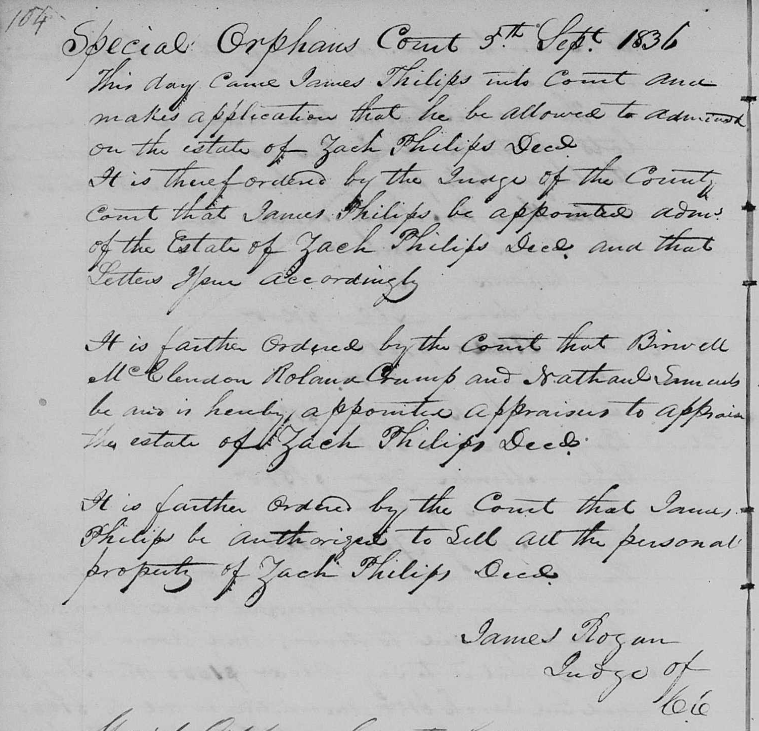 104
Special Orphans Court 5th Sept. 1836
This day came James Philips into Court and
makes application that he be allowed to
on the estate of Zach Philips Decd.
It is theref ordered by the Judge of the County
Court that James Philips be appointed admr.
of the Estate of Zach Philips Decd. and that
Letters Ysue accordingly
It is farther ordered by the Court that
McClendon Roland Crump and
be and is hereby appointed appraisers to
the estate of Zach Philips Decd.
It is farther ordered by the Court that James
Philips be authorized to Sell all the personal
property of Zach Philips Decd.
James Rogan
Judge of